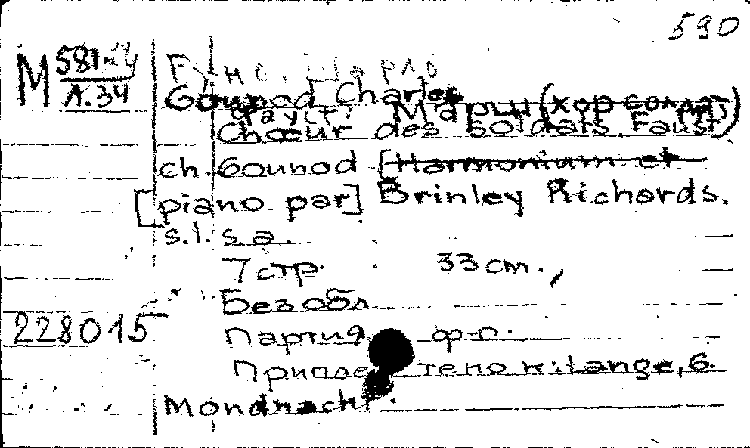 590
М 581 му
Л.34
Гуно, Шарль
Gounod Charles
Фауст. Марш (хор солдат)
Chœur des soldats. Faust
ch. Gounod [Harmonium et
[piano par] Brinley Richards.
s.l. s.a.
7 стр. 33 cm.,
Без обл
228015
Партия ф-п.
к: Lange, G.
Mondnacht.